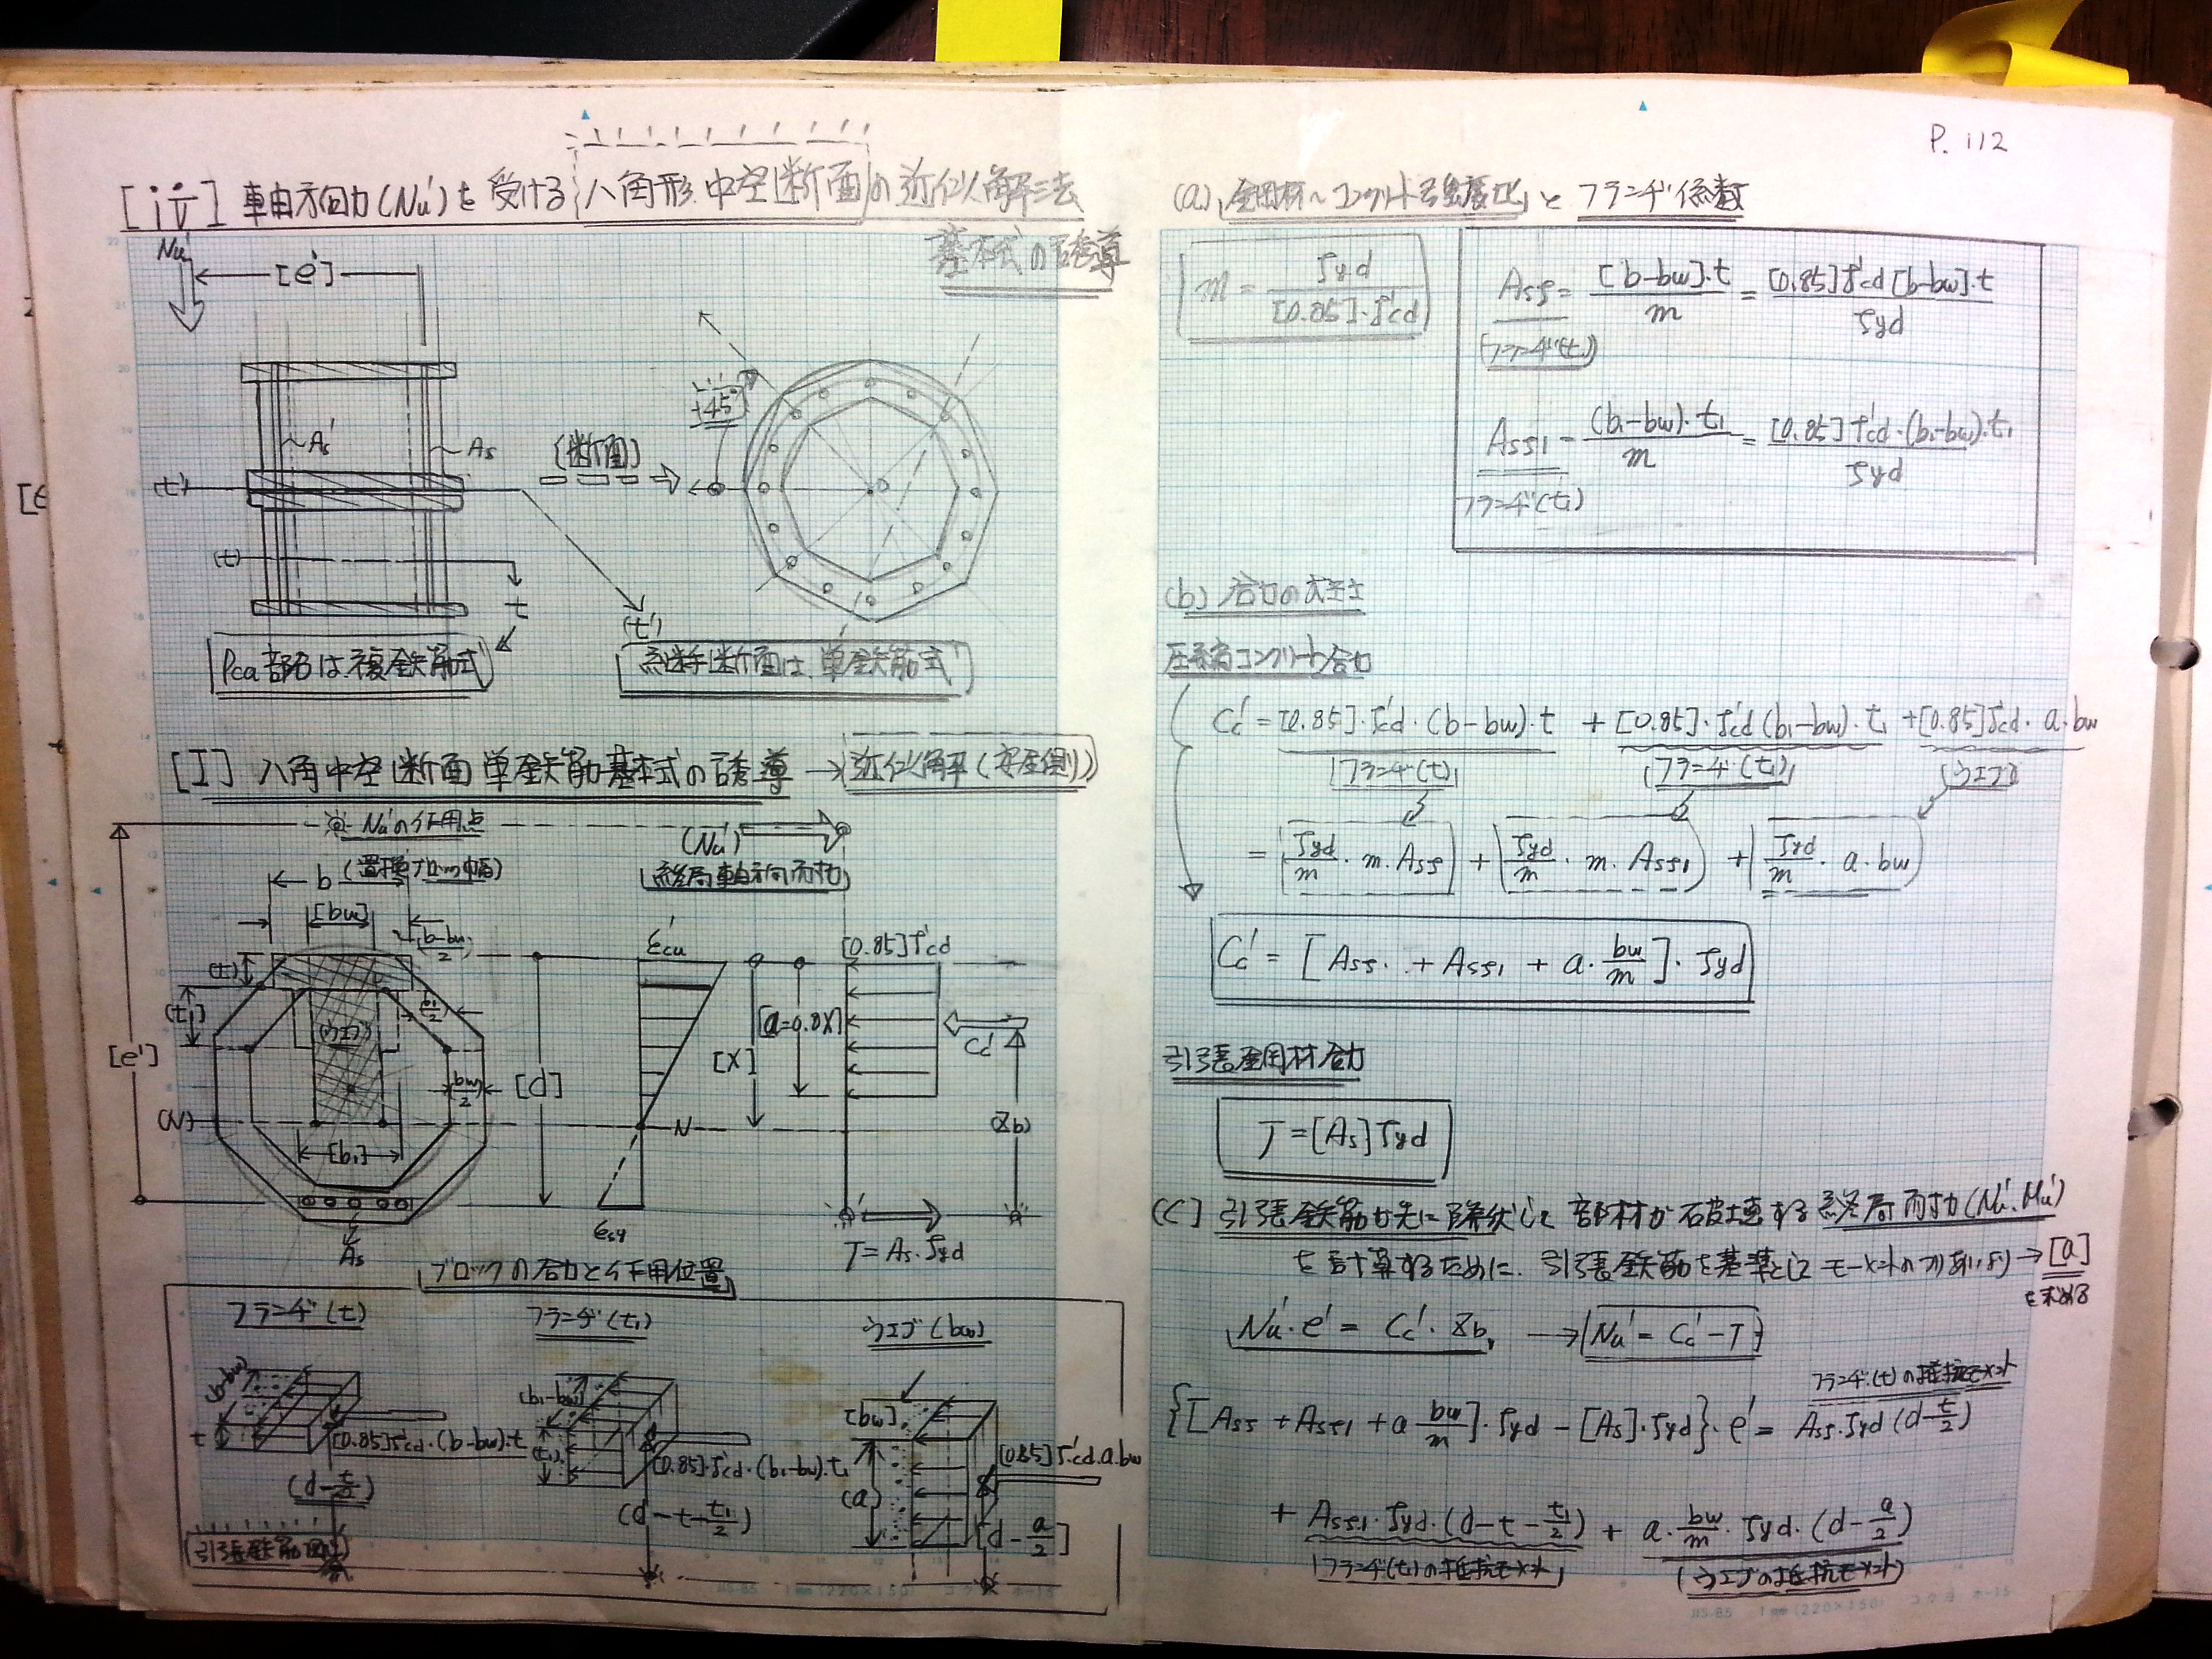 P. 112
[iv] 軸方向力(Nu')を受ける八角形中空断面の近似解法
基本式の誘導
Nu'
[e']
As'
As
(t')
(t)
t
[断面]
45°
(t')
Pca部は複鉄筋式
継手断面は、単鉄筋式
[I] 八角中空断面単鉄筋基本式の誘導→近似解(安全側)
Nu'の作用点
(Nu')
終局軸方向耐力
b (置換ブロック幅)
[bw]
(b-bw)/2
(t)
(t1)
[e']
(ウエブ)
bw/2
[d]
(N)
[b1]
As
ε'cu
[X]
N
εsy
[0.85]f'cd
[a=0.8X]
Cc'
(Zb)
T=As・fyd
ブロックの合力と作用位置
フランヂ(t)
フランヂ(t1)
ウエブ(bw)
(b-bw)
t
[0.85]f'cd・(b-bw)・t
(d-t/2)
(b1-bw)
(t1)
[0.85]・f'cd・(b1-bw)・t1
(d-t-t1/2)
[bw]
(a)
[0.85]f'cd・a・bw
[d-a/2]
(引張鉄筋図心)
(a)「鋼材~コンクリート強度比」とフランヂ係数
m = fyd/[0.85]・f'cd
Asf = [b-bw]・t/m = [0.85]f'cd[b-bw]・t/fyd
[フランヂ(t)]
Asf1 = (b1-bw)・t1/m = [0.85]f'cd・(b1-bw)・t1/fyd
フランヂ(t1)
(b) 合力の大きさ
圧縮コンクリート合力
Cc' = [0.85]・f'cd・(b-bw)・t + [0.85]・f'cd(b1-bw)・t1 + [0.85]f'cd・a・bw
フランヂ(t)
フランヂ(t1)
(ウエブ)
= (fyd/m・m・Asf) + (fyd/m・m・Asf1) + (fyd/m・a・bw)
Cc' = [Asf + Asf1 + a・bw/m]・fyd
引張鋼材合力
T=[As]fyd
(C) 引張鉄筋が先に降伏して部材が破壊する終局耐力(Nu'・Mu')
を計算するために、引張鉄筋を基準としてモーメントのつり合いより→[a]
を求める
Nu'・e' = Cc'・Zb, → Nu' = Cc'-T
フランヂ(t)の抵抗モーメント
{[Asf + Asf1 + a bw/m]・fyd - [As]・fyd}・e' = Asf・fyd (d-t/2)
+ Asf1・fyd・(d-t-t1/2) + a・bw/m・fyd・(d-a/2)
フランヂ(t1)の抵抗モーメント
(ウエブの抵抗モーメント)